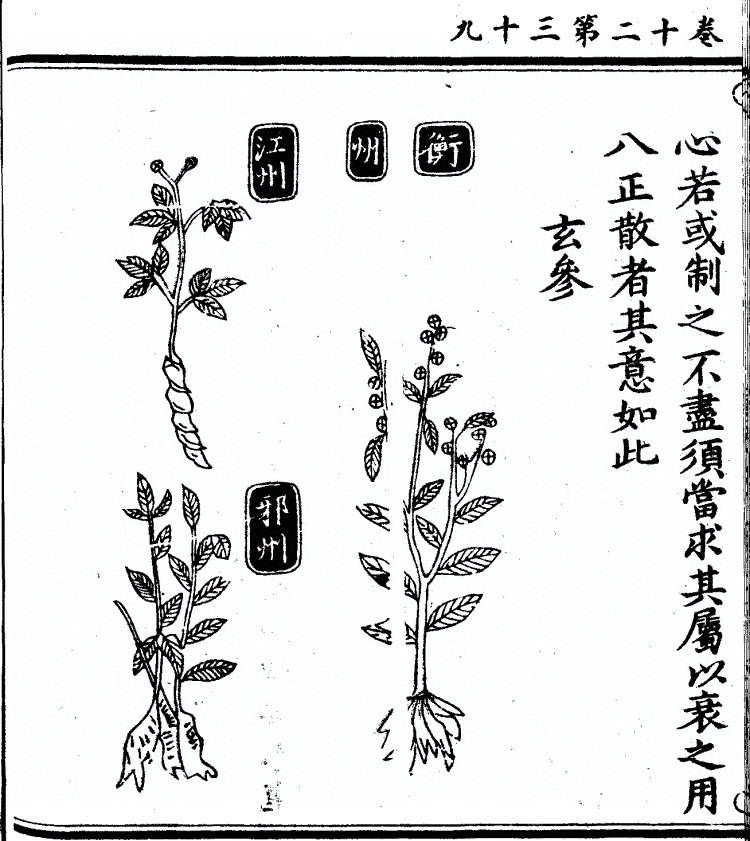 卷十二第三十九
心若或制之不盡須當求其屬以衰之用
八正散者其意如此
玄參
衡
州
江州
邪州